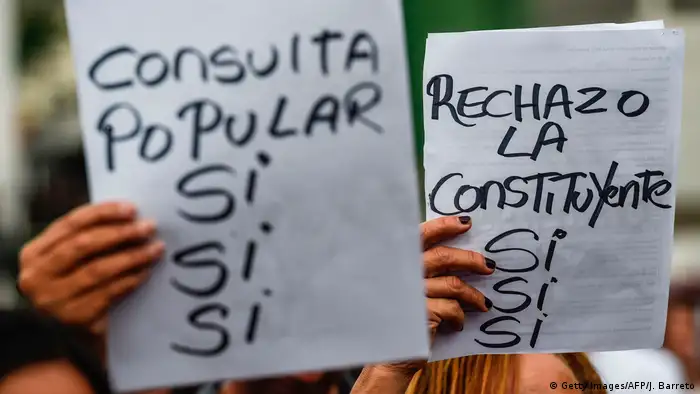 CONSULTA
POPULAR
Sí
Sí
Sí
RECHAZO
LA
CONSTITUyENTE
Sí
Sí
Sí
© Getty Images/AFP/J. Barreto